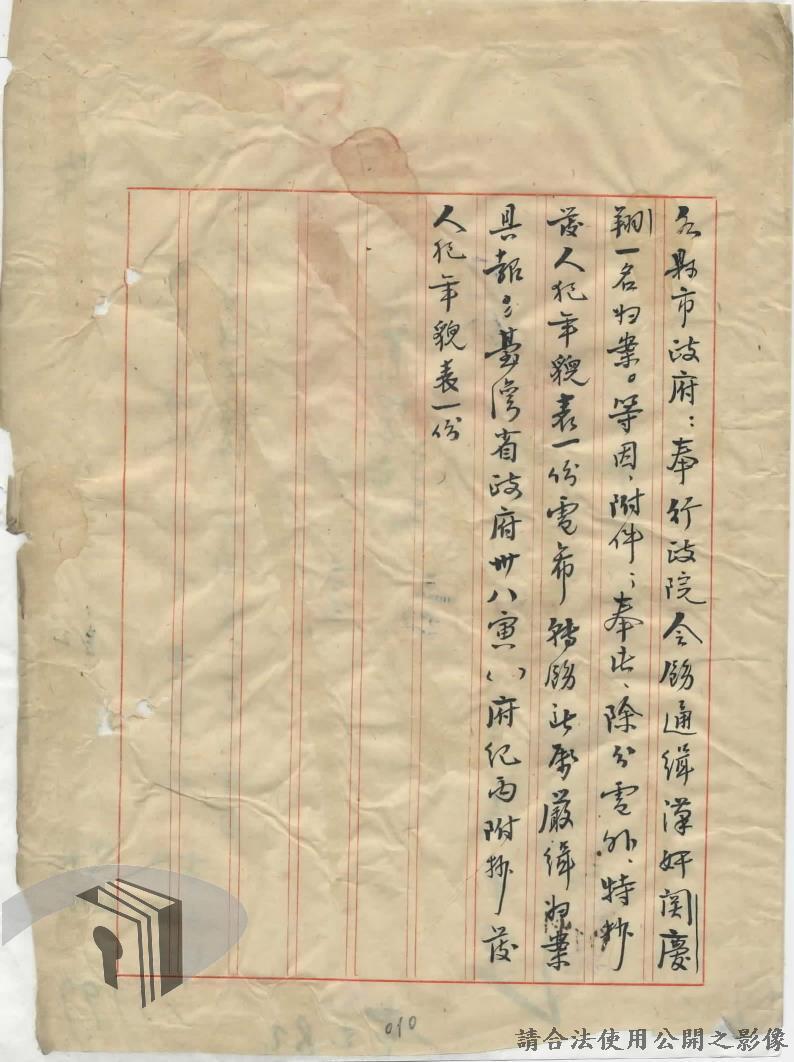 各縣市政府：奉行政院令飭通緝漢奸関慶
翔一名归案。等因、附件；奉此、除分電外、特抄
發人犯年貌表一份電希轉飭所屬嚴緝歸案
具報。臺灣省政府卅八寅()府纪丙附抄發
人犯年貌表一份
010
請合法使用公開之影像